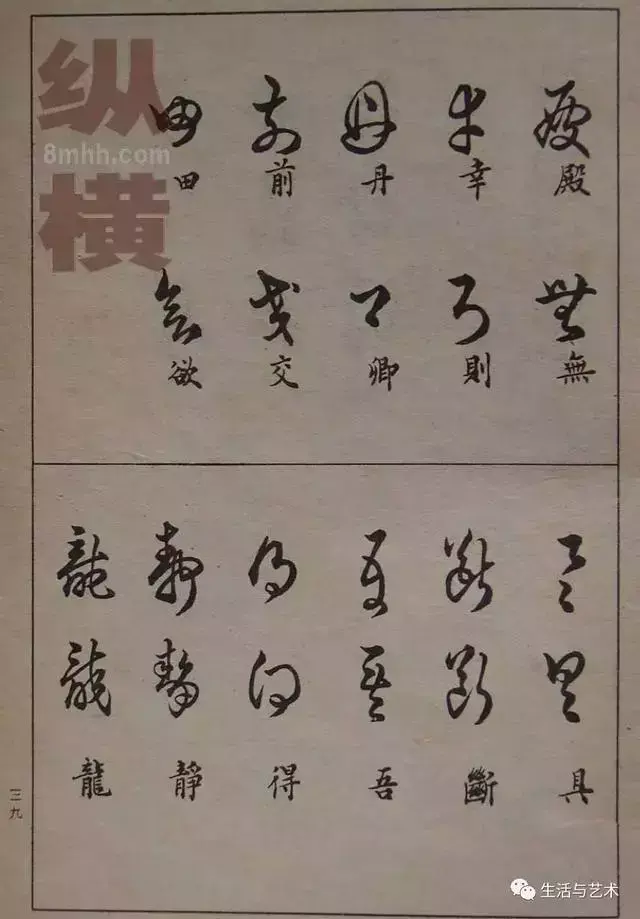 纵横
8mhh.com
殿 幸 丹 前 田
無 則 卿 交 欲
具 斷 吾 得 靜 龍
三九
生活与艺术